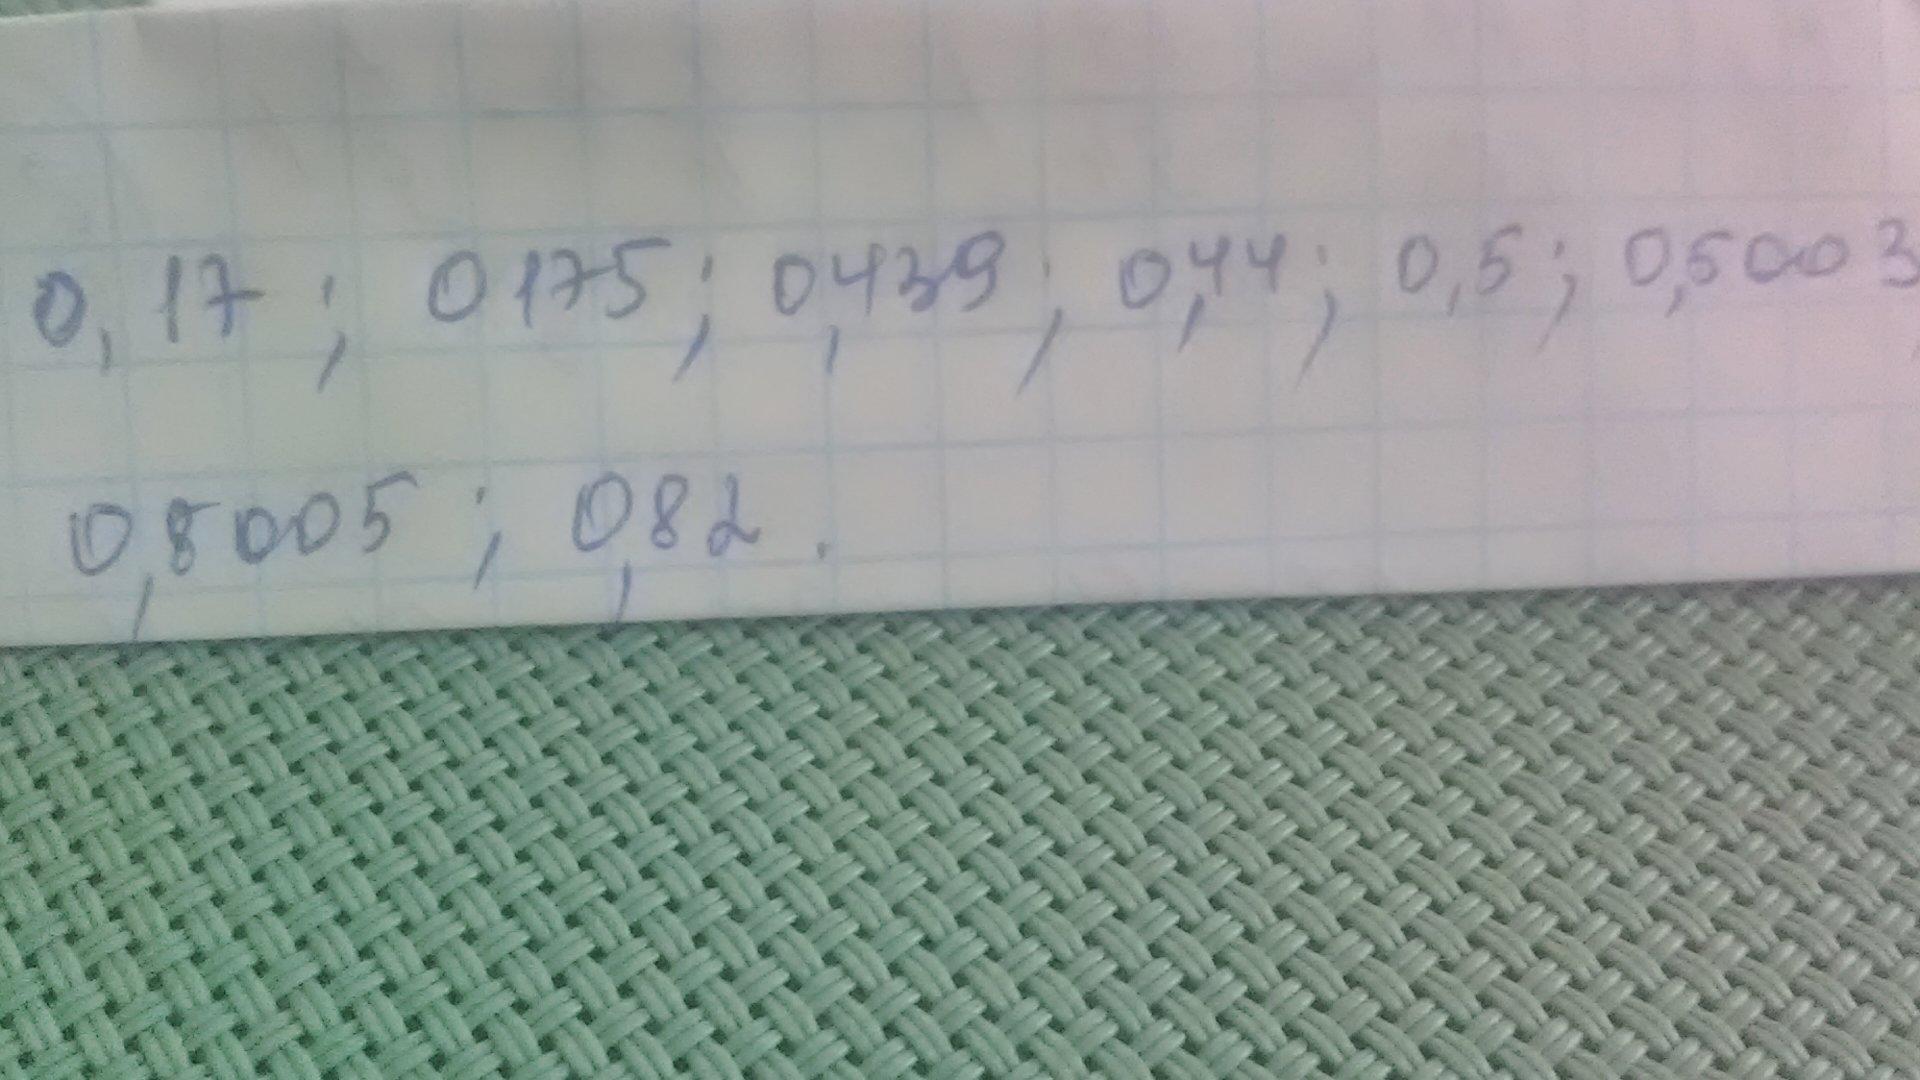 0,17; 0175; 0,439; 0,44; 0,5; 0,5003
0,8005; 0,82.